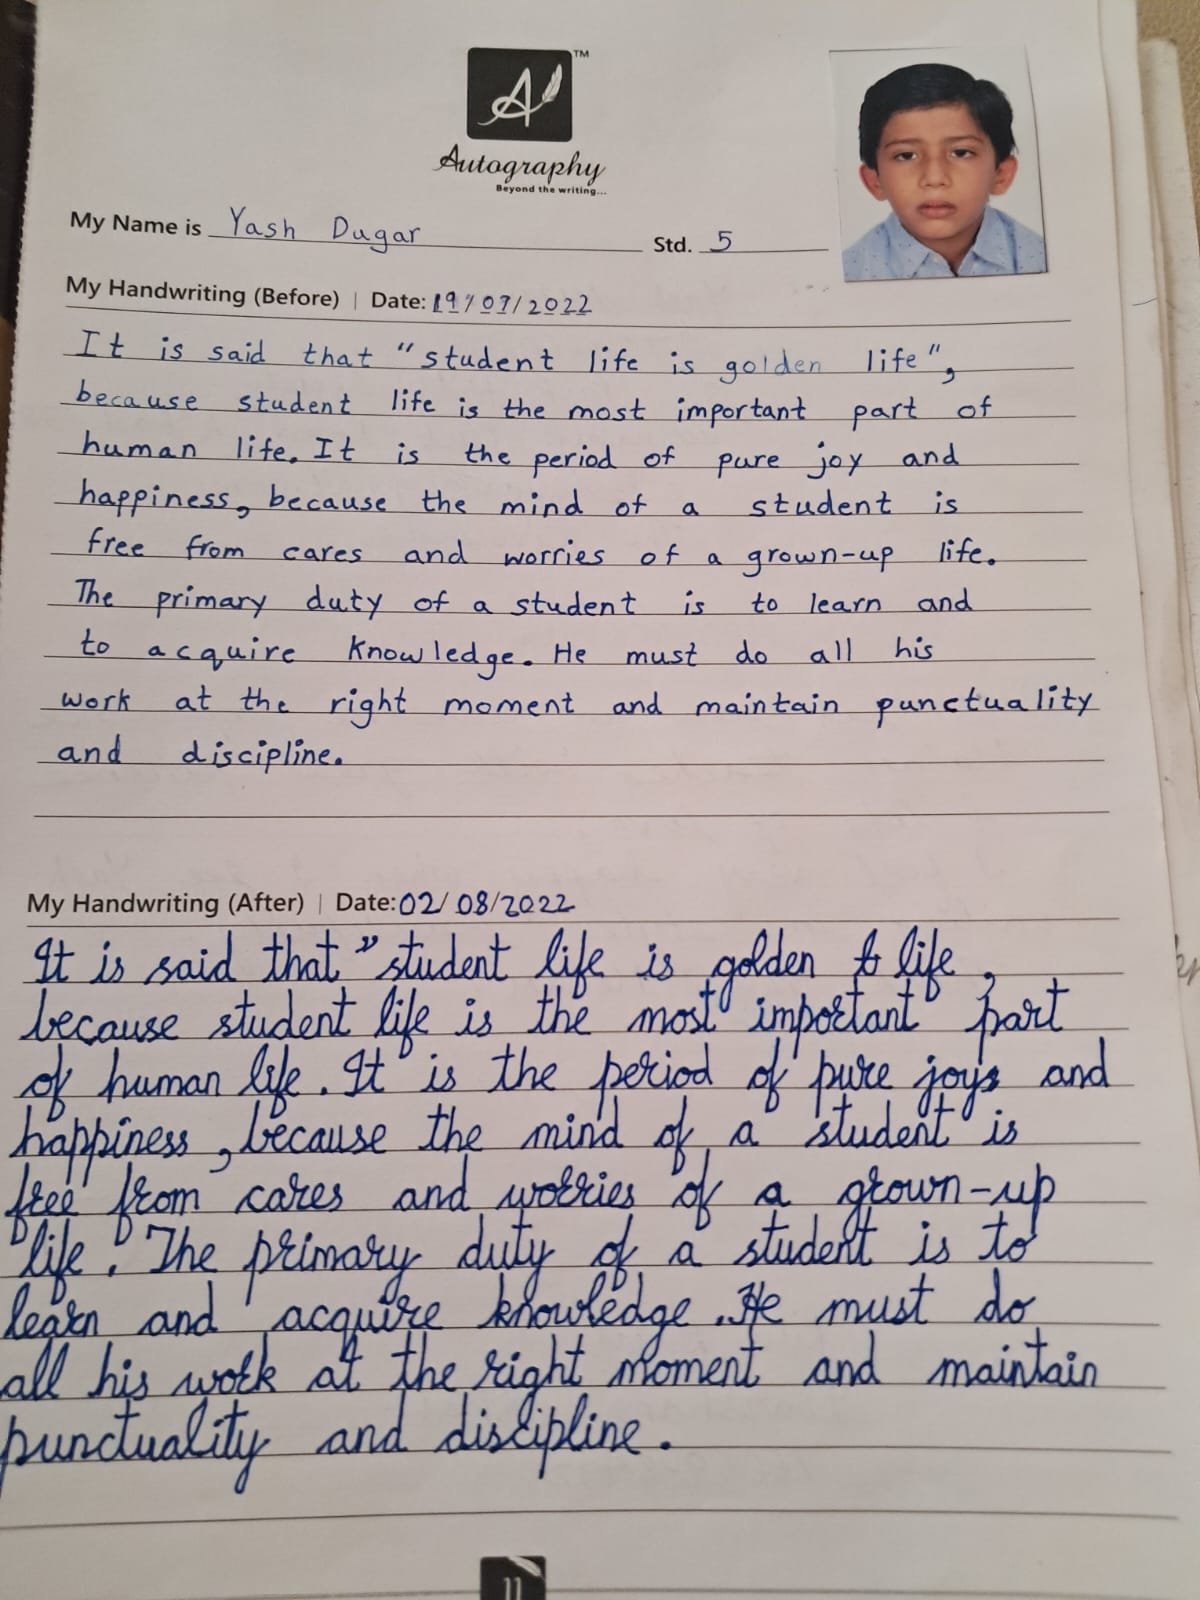 A
TM
Autography
Beyond the writing...
My Name is Yash Dugar Std. 5
My Handwriting (Before) | Date: 19/07/2022
It is said that "student life is golden life",
because student life is the most important part of
human life. It is the period of pure joy and
happiness, because the mind of a student is
free from cares and worries of a grown-up life.
The primary duty of a student is to learn and
to acquire knowledge. He must do all his
work at the right moment and maintain punctuality
and discipline.
My Handwriting (After) | Date: 02/08/2022
It is said that "student life is golden life,
because student life is the most important part
of human life. It is the period of pure joys and
happiness, because the mind of a student is
free from cares and worries of a grown-up
life. The primary duty of a student is to
learn and acquire knowledge. He must do
all his work at the right moment and maintain
punctuality and discipline.
11